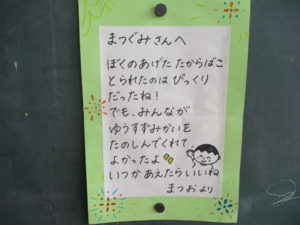 まつぐみさんへ
ぼくのあげた たからばこ
とられたのは びっくり
だったね！
でも、みんなが
ゆうすずみかいを
たのしんでくれて
よかったよ
いつかあえたらいいね
まつおより